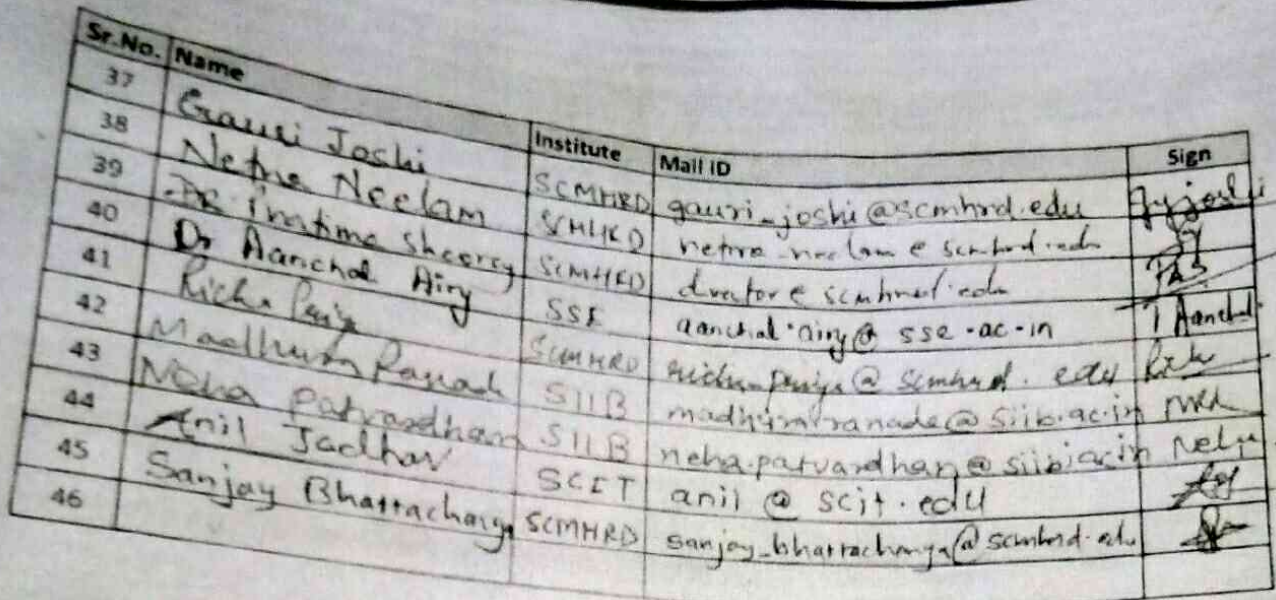 Sr.No. Name Institute Mail ID Sign
37 Gauri Joshi SCMHRD gauri_joshi@scmhrd.edu Gyjoshi
38 Netra Neelam SCMHRD netra_neelam@scmhrd.edu
39 Dr. Pratima Sheorey SCMHRD director@scmhrd.edu
40 Dr Aanchal Airy SSE aanchal.airy@sse.ac.in Aanchal
41 Richa Priya SCMHRD richa_priya@scmhrd.edu
42 Madhura Ranade SIIB madhura.ranade@siib.ac.in
43 Neha Patvardhan SIIB neha.patvardhan@siib.ac.in Neha
44 Anil Jadhav SCIT anil@scit.edu
45 Sanjay Bhattacharya SCMHRD sanjay_bhattacharya@scmhrd.edu
46